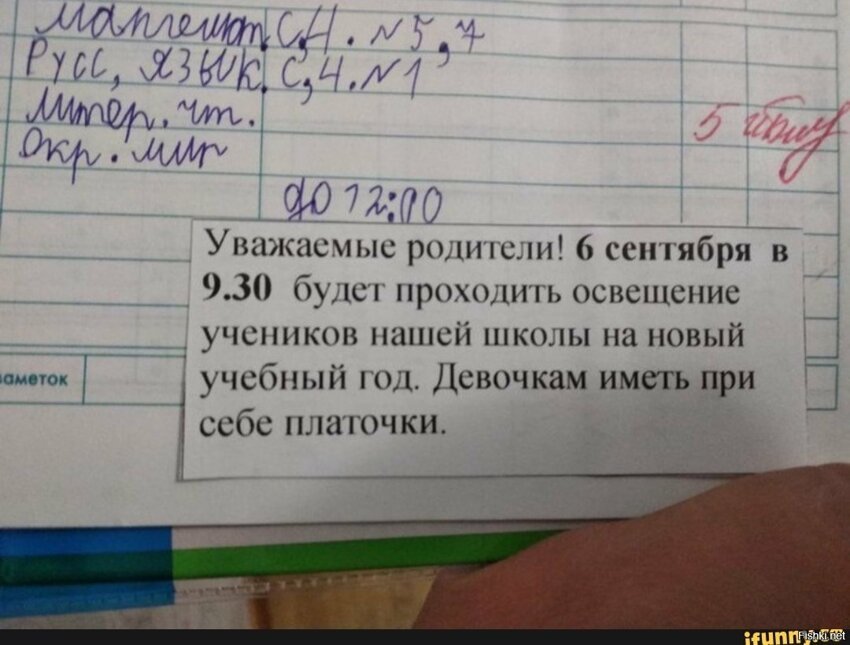 Математ. с,4. №5,7
Русс, язык. с,4.№1
Литер. чт.
Окр. мир
5
до 12:00
Уважаемые родители! 6 сентября в
9.30 будет проходить освещение
учеников нашей школы на новый
учебный год. Девочкам иметь при
себе платочки.
аметок
ifunny.ce
Fishki.net